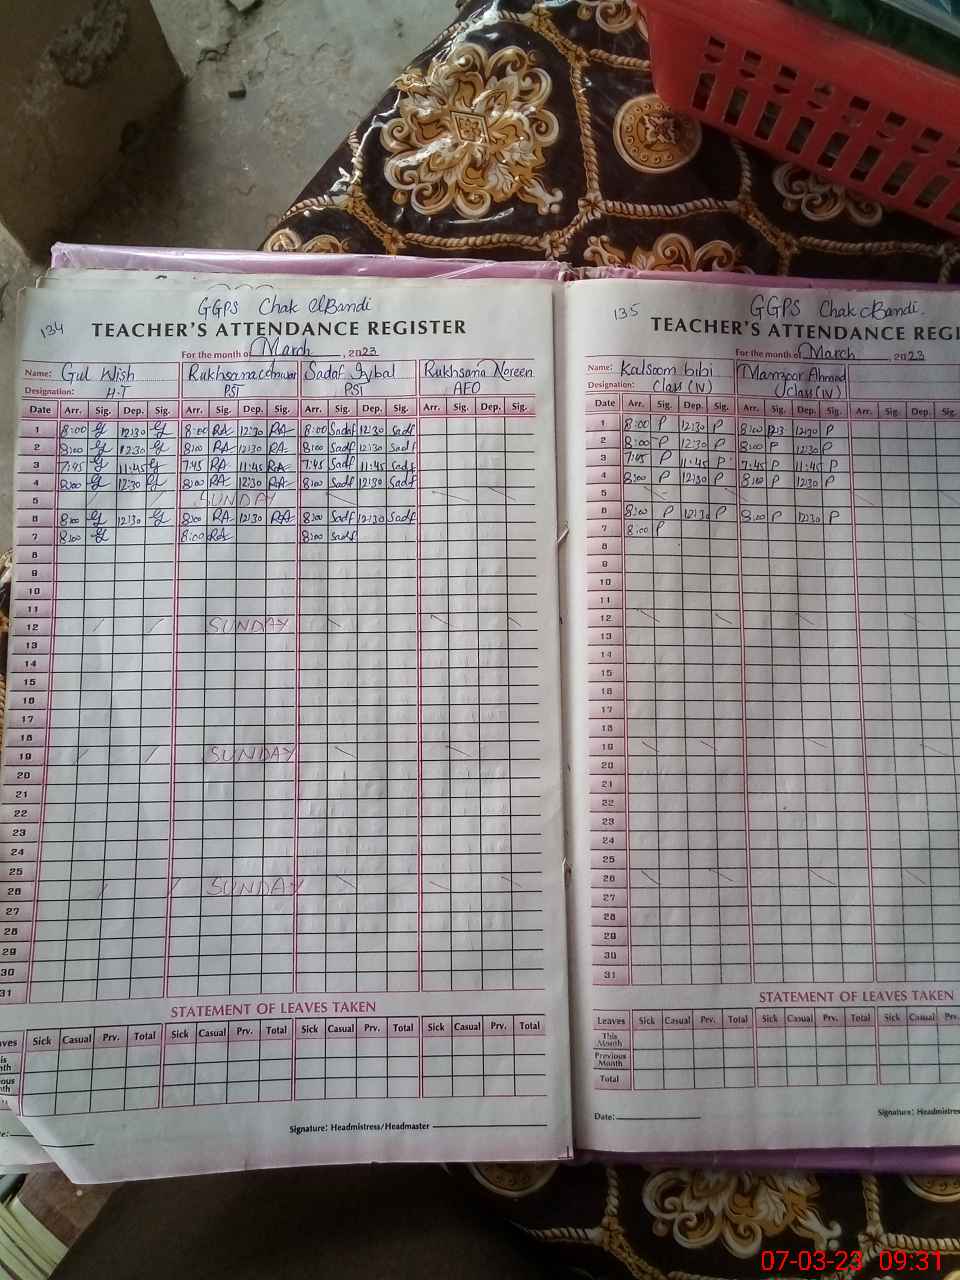 134
GGPS Chak
TEACHER'S ATTENDANCE REGISTER
For the month of March, 2023
Name: Gul Wish Rukhsana Sadaf Iqbal Rukhsana Noreen
Designation: H.T PST PST AEO
Date Arr. Sig. Dep. Sig. Arr. Sig. Dep. Sig. Arr. Sig. Dep. Sig. Arr. Sig. Dep. Sig.
1 8:00 12:30 8:00 RA 12:30 RA 8:00 Sadaf 12:30 Sadf
2 8:00 12:30 8:00 RA 12:30 RA 8:00 Sadf 12:30 Sadf
3 7:45 11:45 7:45 RA 11:45 RA 7:45 Sadf 11:45 Sadf
4 8:00 12:30 8:00 RA 12:30 RA 8:00 Sadf 12:30 Sadf
5 SUNDAY
6 8:00 12:30 8:00 RA 12:30 RA 8:00 Sadf 12:30 Sadf
7 8:00 8:00 RA 8:00 Sadf
8
9
10
11
12 SUNDAY
13
14
15
16
17
18
19 SUNDAY
20
21
22
23
24
25
26 SUNDAY
27
28
29
30
31
STATEMENT OF LEAVES TAKEN
Sick Casual Prv. Total Sick Casual Prv. Total Sick Casual Prv. Total Sick Casual Prv. Total
Signature: Headmistress/Headmaster
135
GGPS Chak
TEACHER'S ATTENDANCE REGI
For the month of March, 2023
Name: Kalsoom bibi Manzoor Ahmed
Designation: Class (IV) Class (IV)
Date Arr. Sig. Dep. Sig. Arr. Sig. Dep. Sig. Arr. Sig. Dep.
1 8:00 P 12:30 P 8:00 12:30 P
2 8:00 P 12:30 P 8:00 P 12:30 P
3 7:45 P 11:45 P 7:45 P 11:45 P
4 8:00 P 12:30 P 8:00 P 12:30 P
5
6 8:00 P 12:30 P 8:00 P 12:30 P
7 8:00 P
8
9
10
11
12
13
14
15
16
17
18
19
20
21
22
23
24
25
26
27
28
29
30
31
STATEMENT OF LEAVES TAKEN
Leaves Sick Casual Prv. Total Sick Casual Prv. Total Sick Casual Prv.
This Month
Previous Month
Total
Date:
Signature: Headmistres
07-03-23 09:31